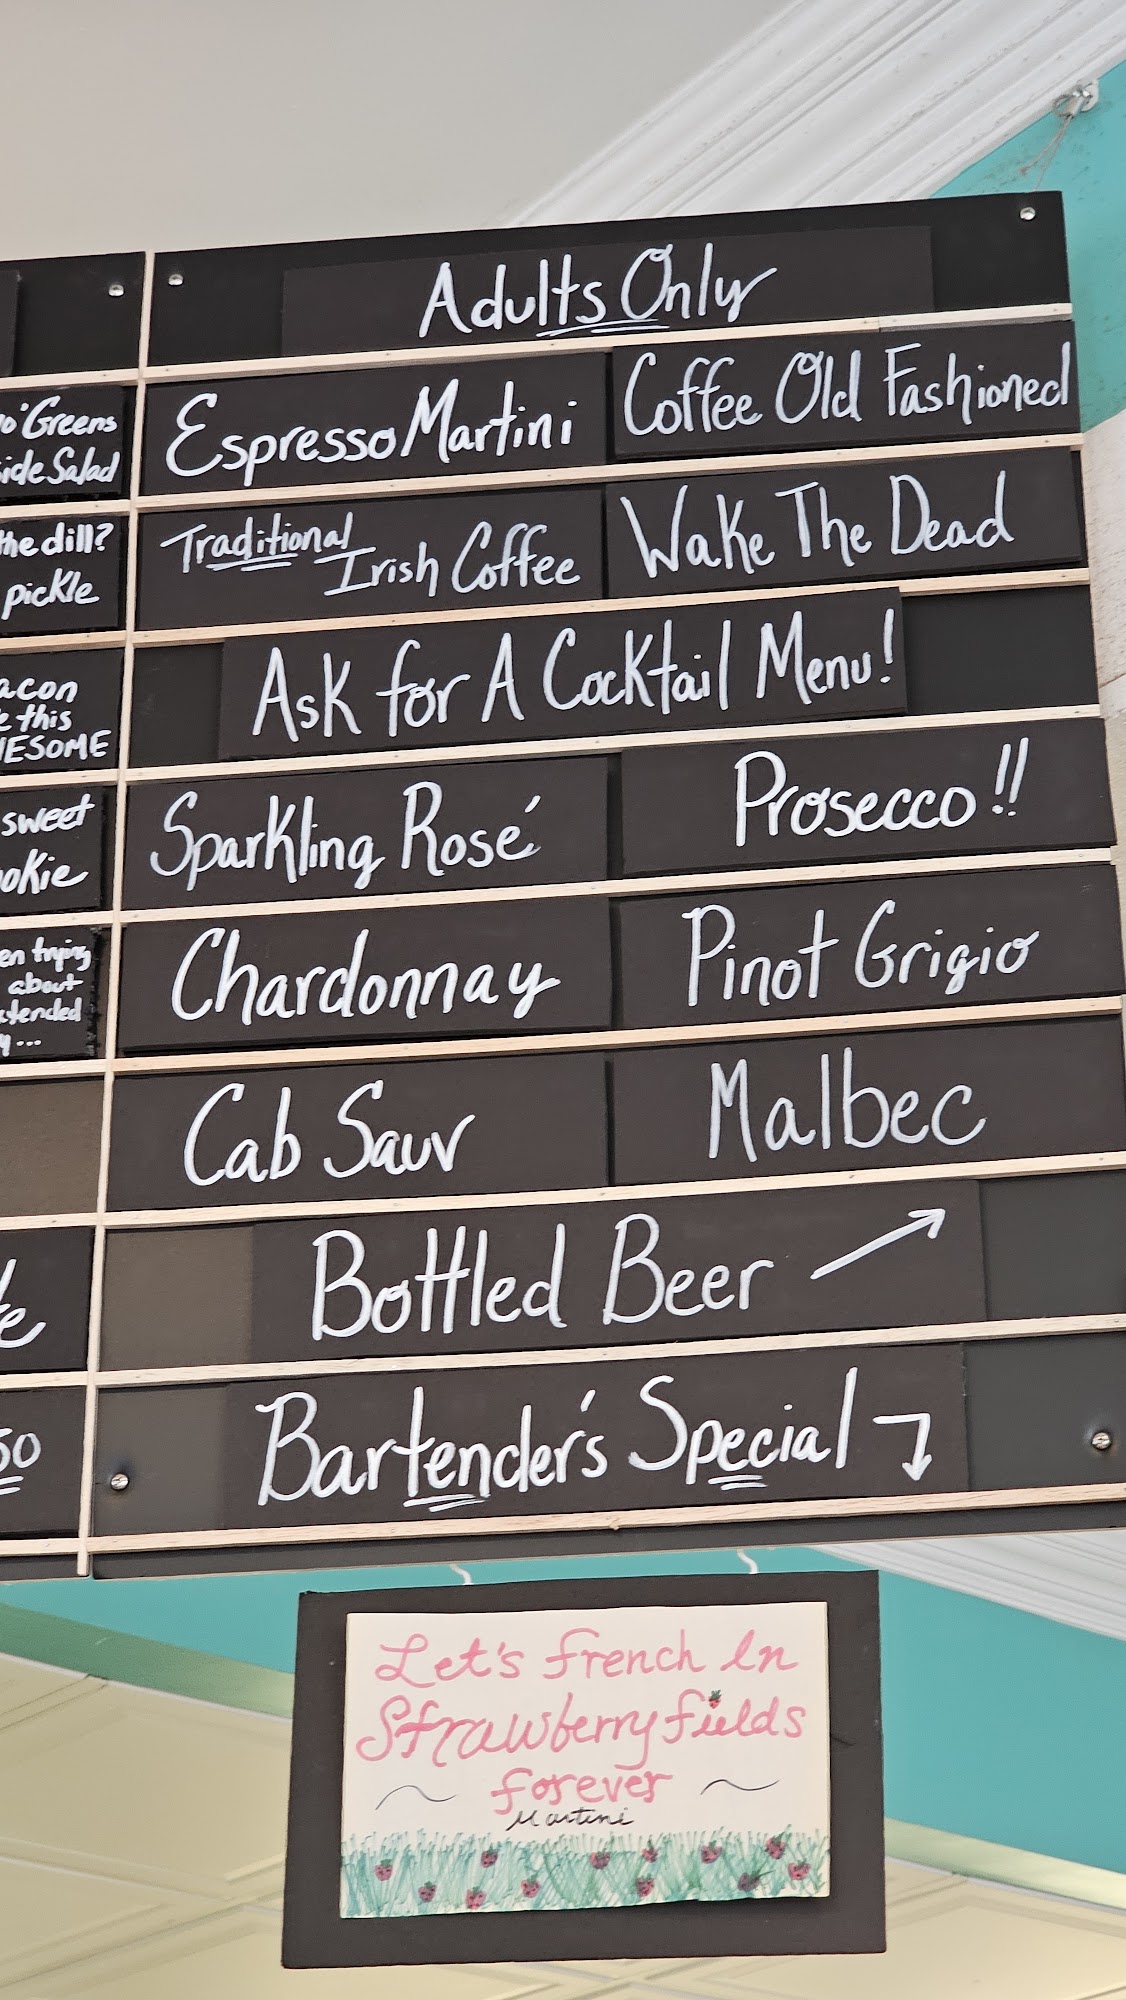 Adults Only
Espresso Martini
Coffee Old Fashioned
Traditional
Irish Coffee
Wake The Dead
Ask for A Cocktail Menu!
Sparkling Rosé
Prosecco!!
Chardonnay
Pinot Grigio
Cab Sauv
Malbec
Bottled Beer
Bartender's Special
Let's french In
Strawberry fields
forever
Martini
Greens
Salad
the dill?
pickle
this
sweet
trying
about